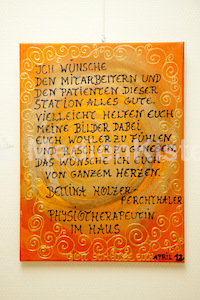 ICH WÜNSCHE
DEN MITARBEITERN UND
DEN PATIENTEN DIESER
STATION ALLES GUTE.
VIELLEICHT HELFEN EUCH
MEINE BILDER DABEI
EUCH WOHLER ZU FÜHLEN
UND RASCHER ZU GENESEN.
DAS WÜNSCHE ICH EUCH
VON GANZEM HERZEN.
BETTINA HOLZER-
PERCHTHALER
PHYSIOTHERAPEUTIN
IM HAUS
APRIL 12